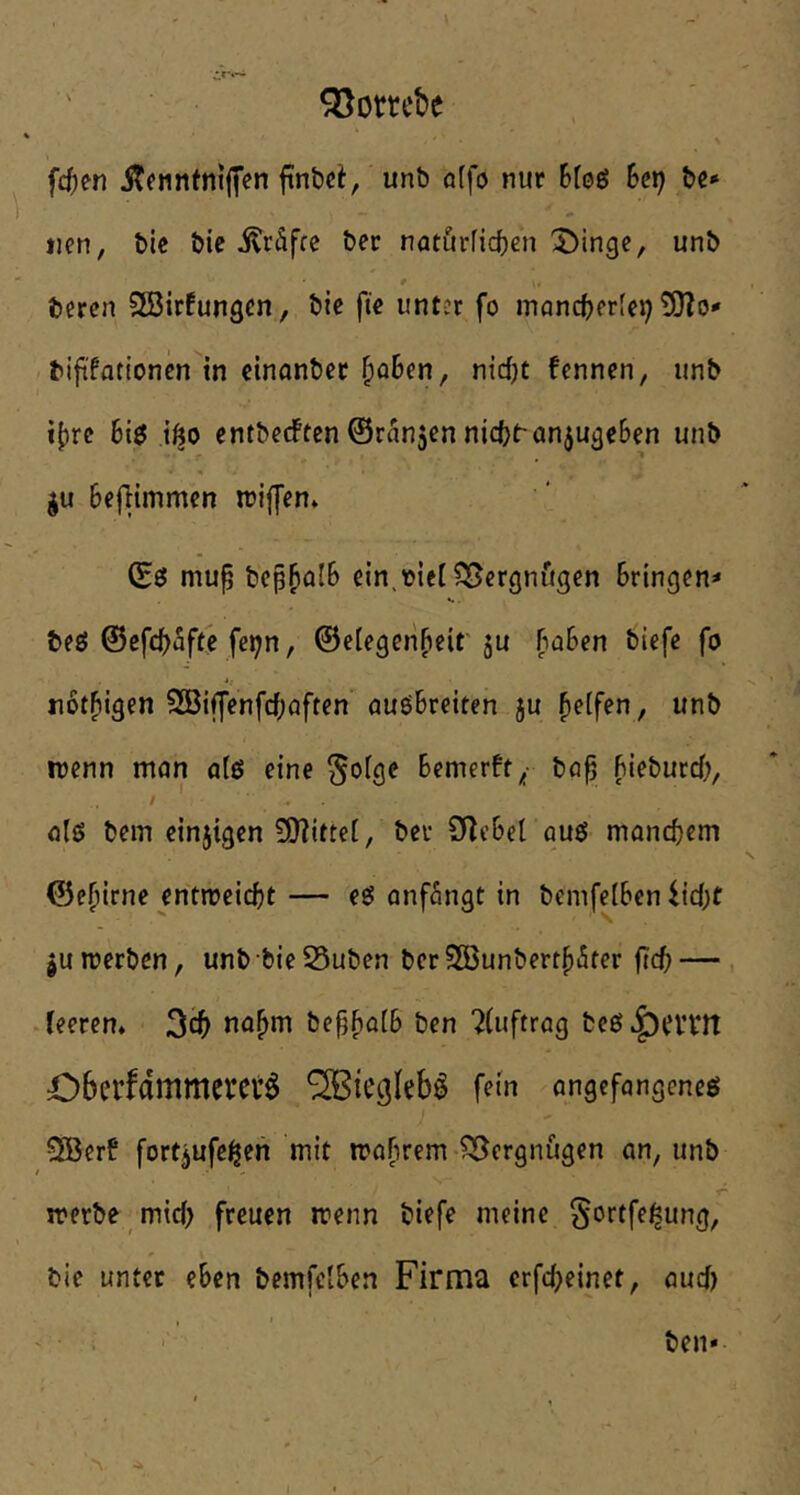 Vorrede
schen Kenntnissen findet, und also nur blos bey de-
nen, die die Kräfte der natürlichen Dinge, und
deren Wirkungen, die sie unter so mancherley Mo-
difikationen in einander haben, nicht kennen, und
ihre bis itzo entdeckten Gränzen nicht anzugeben und
zu bestimmen wissen.
Es muß deßhalb ein viel Vergnügen bringen-
des Geschäfte seyn, Gelegenheit zu haben diese so
nöthigen Wissenschaften ausbreiten zu helfen, und
wenn man als eine Folge bemerkt, daß hiedurch,
als dem einzigen Mittel, der Nebel aus manchem
Gehirne entweicht — es anfängt in demselben Licht
zu werden, und die Buden der Wunderthäter sich —
leeren. Ich nahm deßhalb den Auftrag des Herrn
Oberkämmerers Wieglebs sein angefangenes
Werk fortzusetzen mit wahrem Vergnügen an, und
werde mich freuen wenn diese meine Fortsetzung,
die unter eben demselben Firma erscheinet, auch
den-